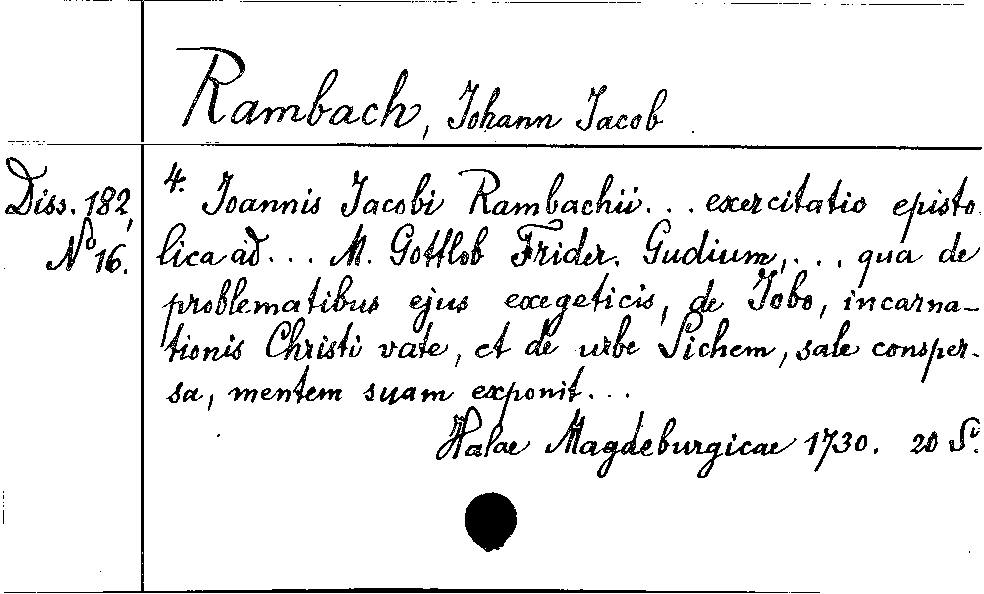 Rambach, Johann Jacob
Diss. 182,
No 16.
4. Joannis Jacobi Rambachii... exercitatio episto-
lica ad... M. Gottlob Frider. Gudium,... qua de
problematibus ejus exegeticis, de Jobo, incarna-
tionis Christi vate, et de urbe Sichem, sale consper-
sa, mentem suam exponit...
Halae Magdeburgicae 1730. 20 S.